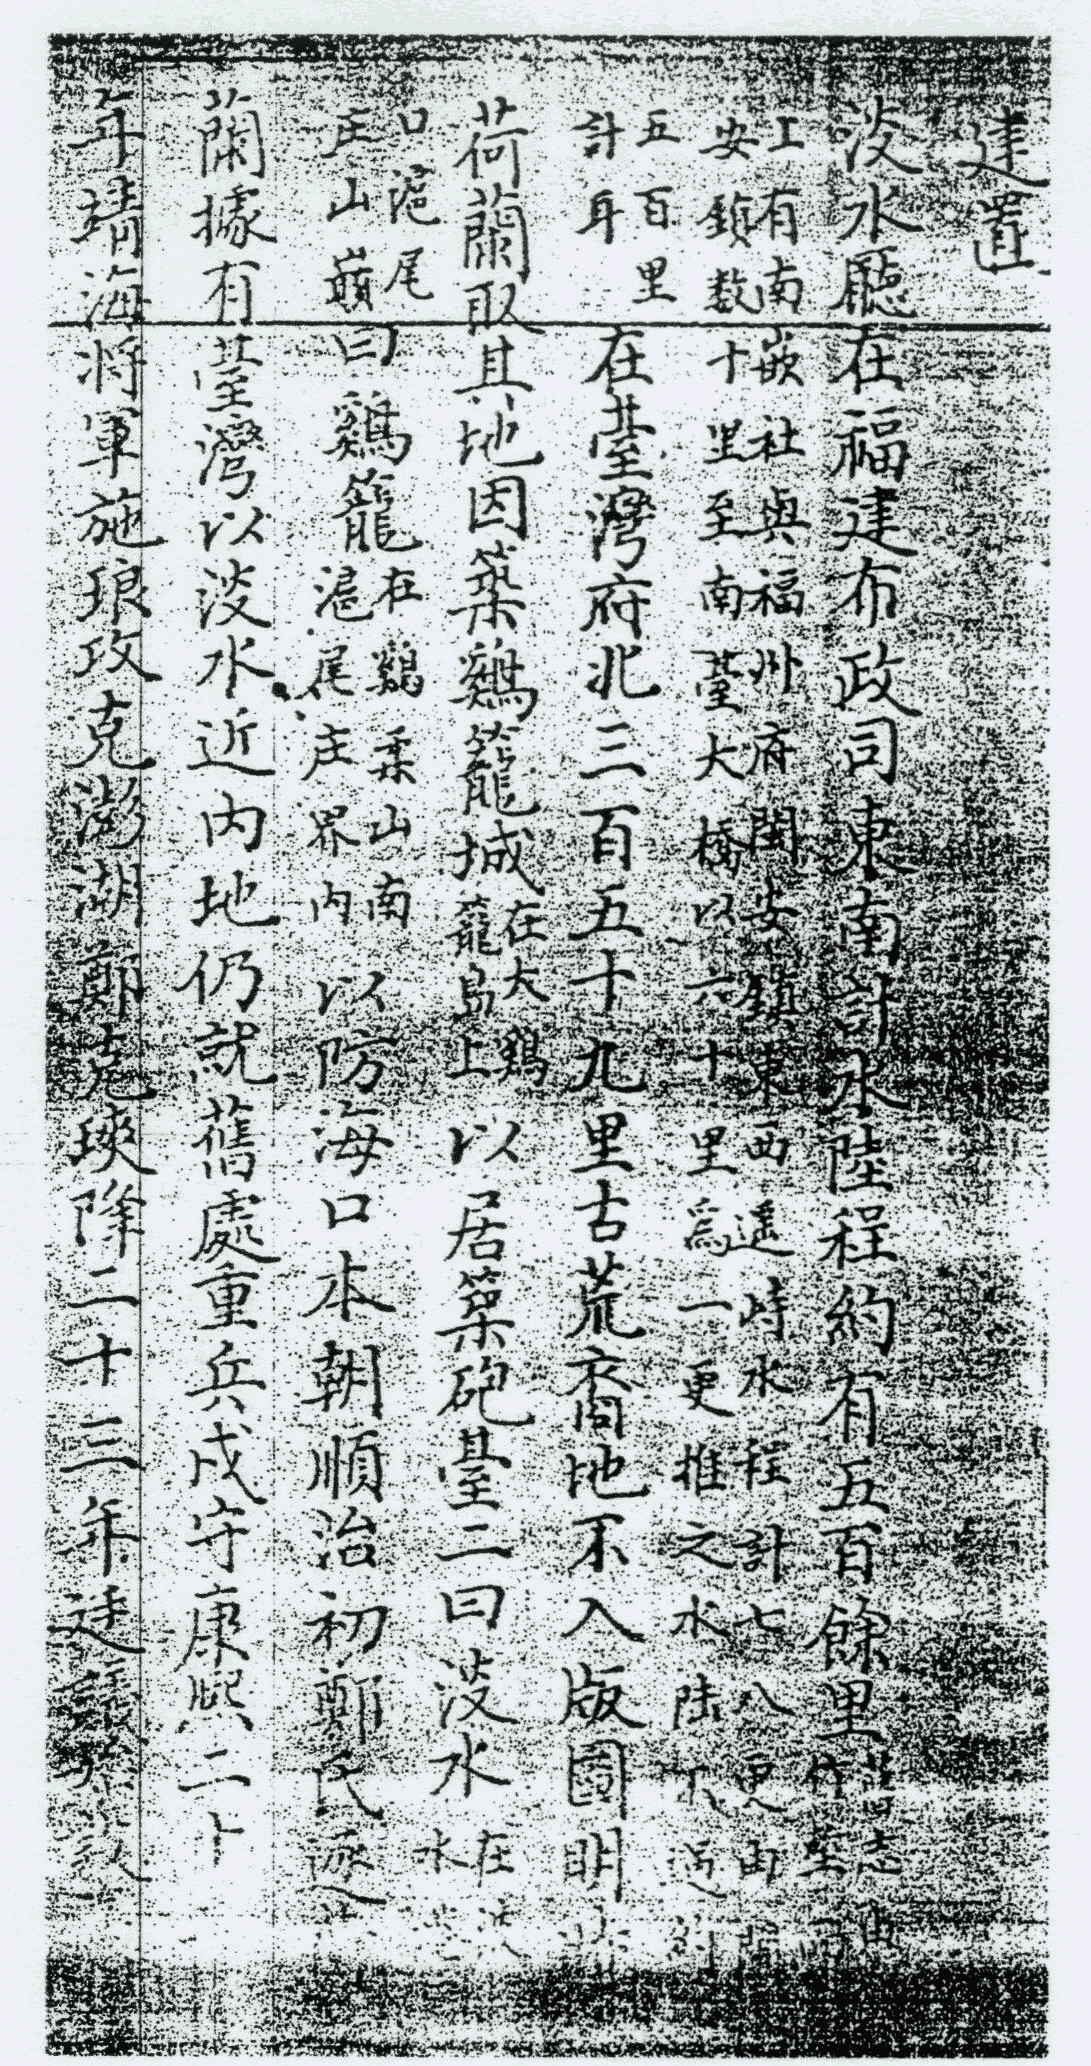 建置
淡水廳在福建布政司東南計水陸程約有五百餘里舊志由竹塹
工有南嵌社與福州府閩安鎮東西遥峙水程計七八更由
安鎮数十里至南臺大橋以六十里爲一更推之水陸不過約
五百里計耳在臺灣府北三百五十九里古荒裔地不入版圖明
荷蘭取其地因築鷄籠城在大鷄籠島上以居築砲臺二曰淡水在淡水
口滬尾庄山巔曰鷄籠在鷄柔山南滬尾庄界內以防海口本朝順治初鄭氏逐
蘭據有臺灣以淡水近內地仍就舊處重兵戍守康熙二十
年靖海将軍施琅攻克澎湖鄭克塽降二十三年廷議